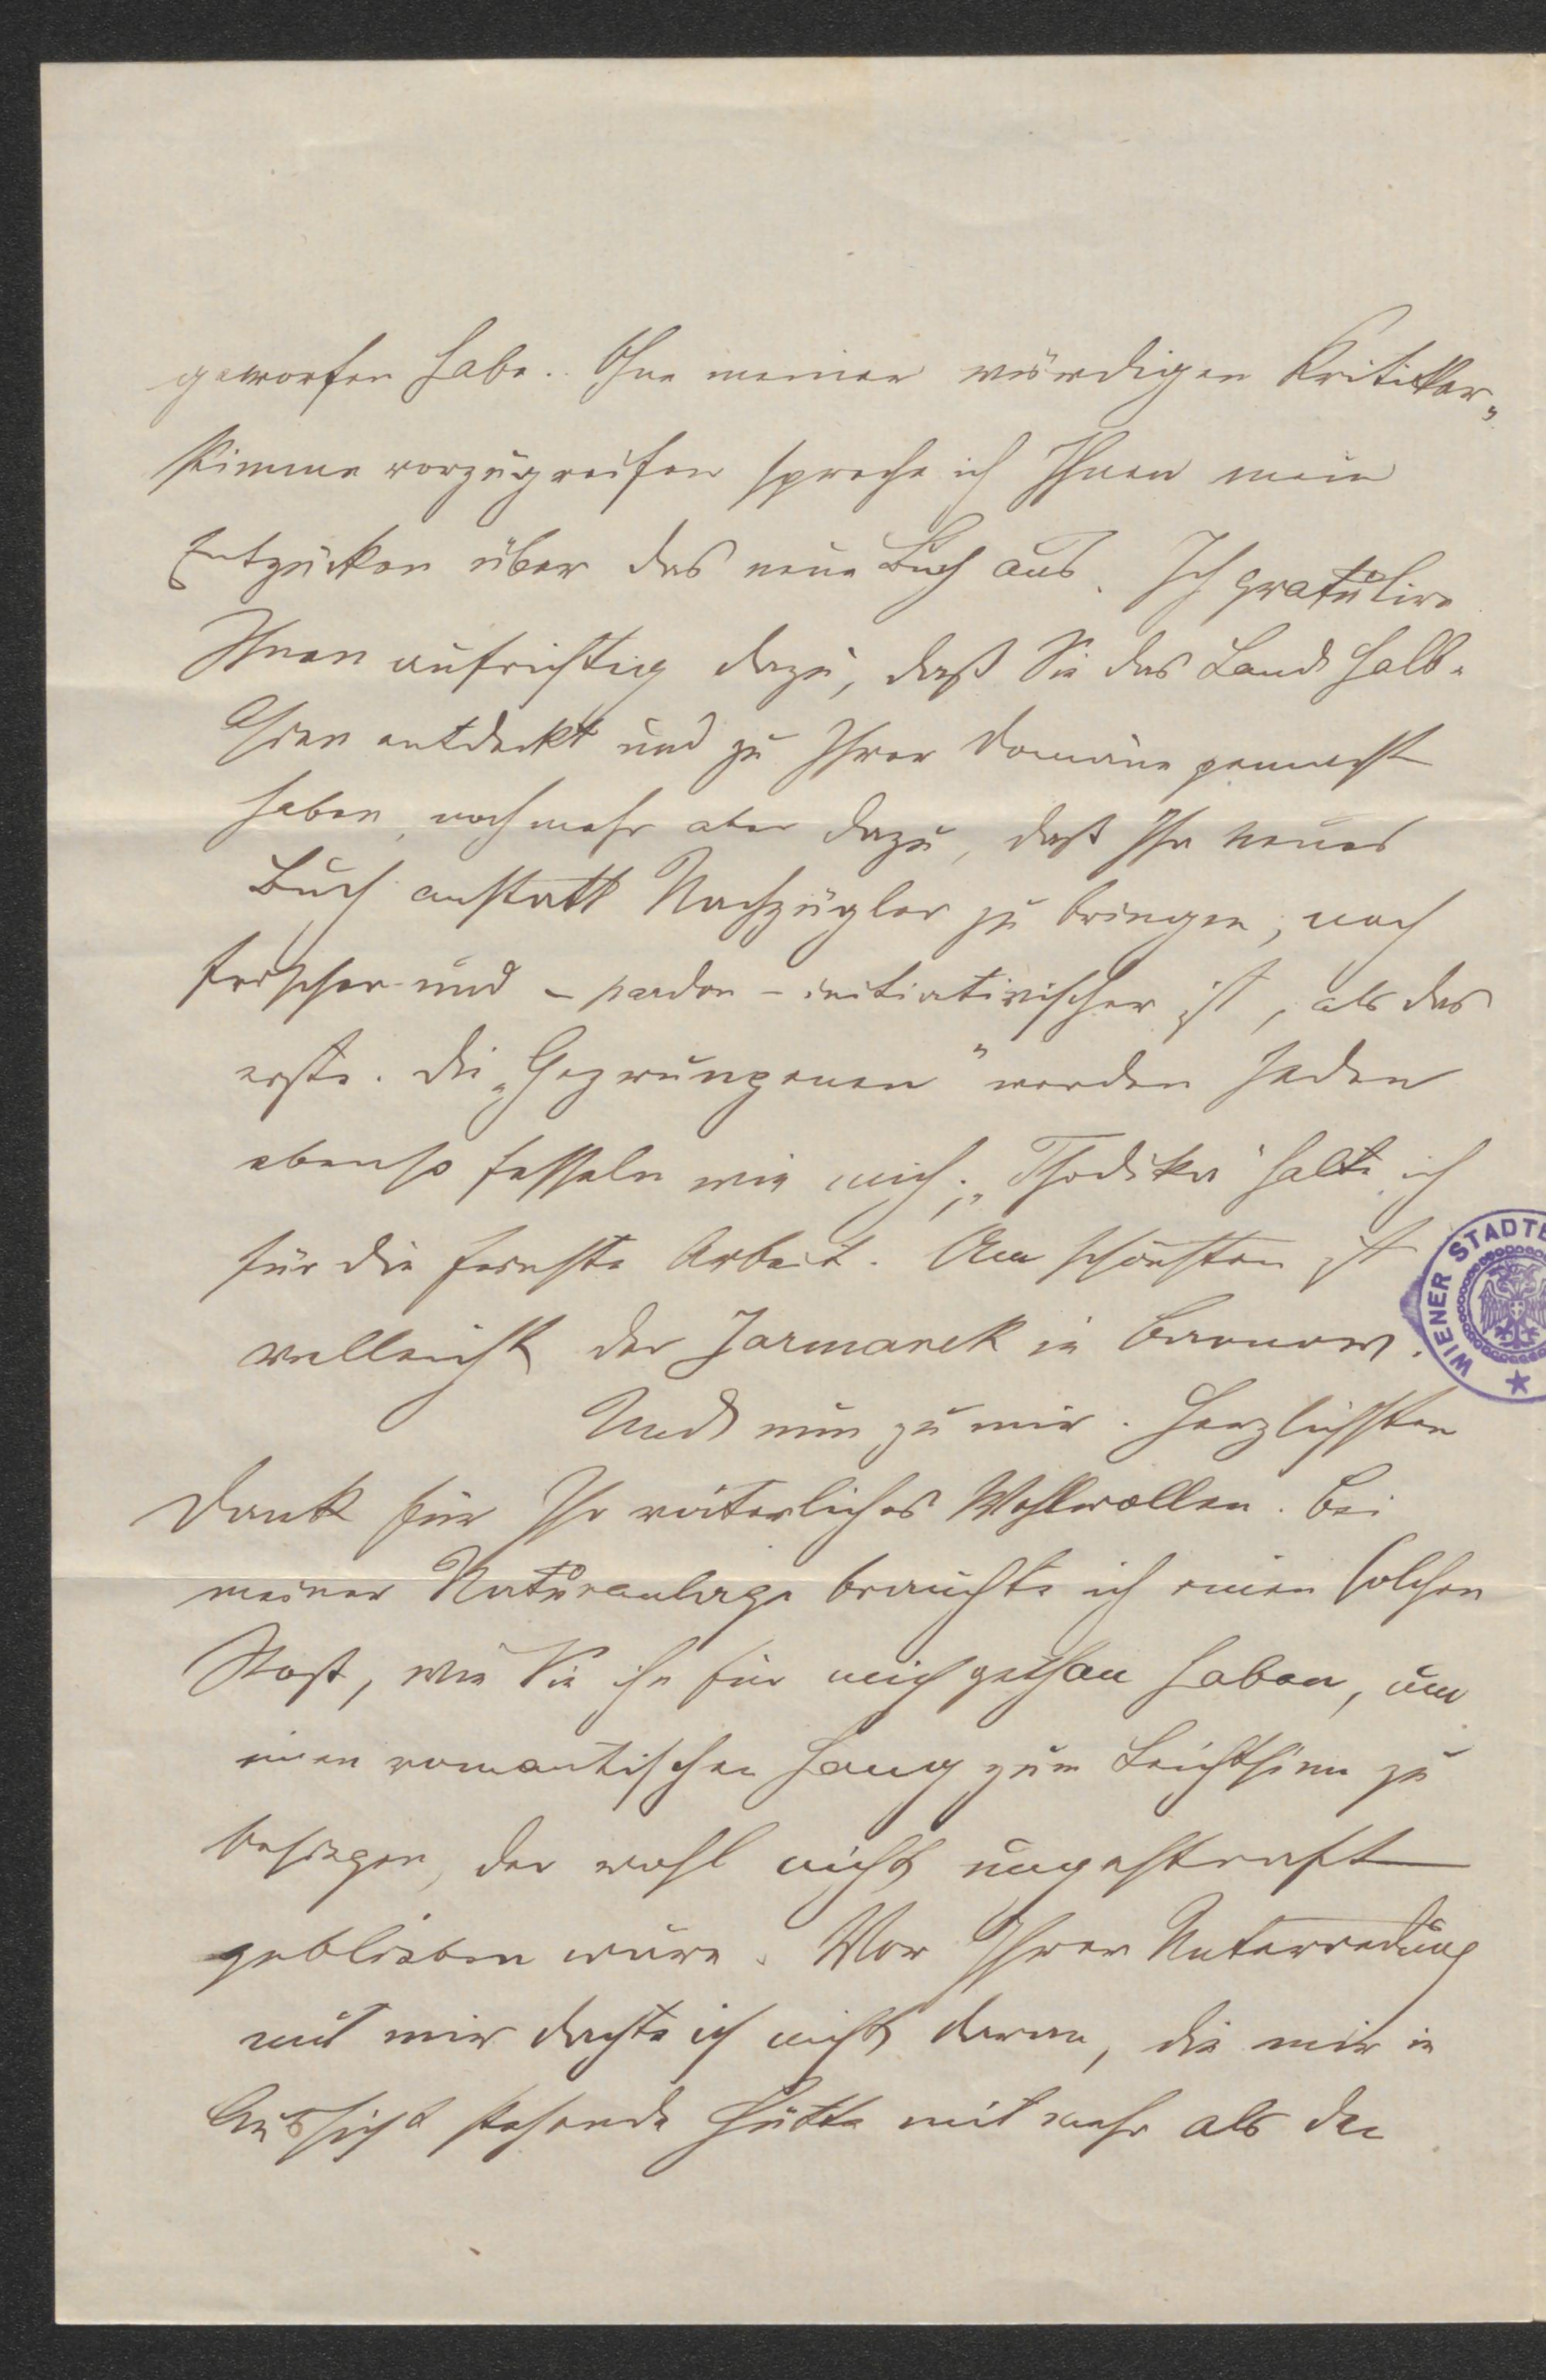 geworfen habe. Ohne meiner würdigen Kritiker-
stimme vorzugreifen spreche ich Ihnen mein
Entzücken über das neue Buch aus. Ich gratulire
Ihnen aufrichtig dazu, daß Sie das Land Halb-
Asien entdeckt und zu Ihrer Domäne gemacht
haben, noch mehr aber dazu, daß Ihr neues
Buch anstatt Nachzügler zu bringen, noch
frischer und – pardon – initiativischer ist, als das
erste. Die „Gezwungenen" werden Jeden
ebenso fesseln wie mich; „Thodika" halte ich
für die feinste Arbeit. Am schönsten ist
vielleicht der Jarmarek in Barnow.
Und nun zu mir. Herzlichsten
Dank für Ihr väterliches Wohlwollen. Bei
meiner Naturanlage brauchte ich einen solchen
Stoß, wie Sie ihn für mich gethan haben, um
einen romantischen Hang zum Leichtsinn zu
besiegen, der wohl nicht ungestraft
geblieben wäre. Vor Ihrer Unterredung
mit mir dachte ich nicht daran, die mir in
Aussicht stehende Hütte mit mehr als den
WIENER STADTB